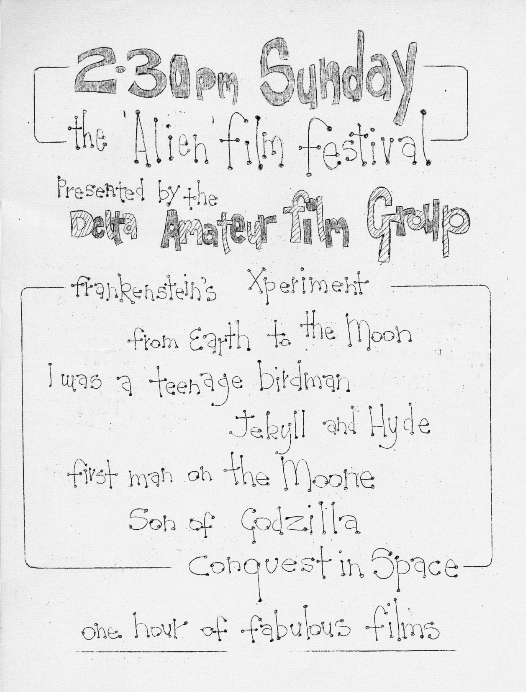 2·30pm Sunday
the 'Alien' film festival
Presented by the
Delta Amateur film Group
frankenstein's Xperiment
from Earth to the Moon
I was a teenage birdman
Jekyll and Hyde
first man on the Moone
Son of Godzilla
Conquest in Space
one hour of fabulous films